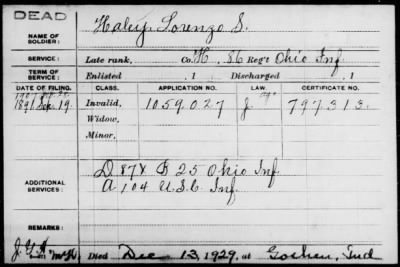 DEAD
NAME OF SOLDIER: Haley, Lorenzo S.
SERVICE: Late rank, Co. H, 86 Reg't Ohio Inf
TERM OF SERVICE: Enlisted , 1 Discharged , 1
DATE OF FILING. CLASS. APPLICATION NO. LAW. CERTIFICATE NO.
1891 Sep. 19. Invalid, 1059.027 J. 797.313.
Widow,
Minor,
ADDITIONAL SERVICES: D 87 & B 25 Ohio Inf.
A 104 U.S.C. Inf.
REMARKS:
Died Dec 13, 1929, at Goshen, Ind